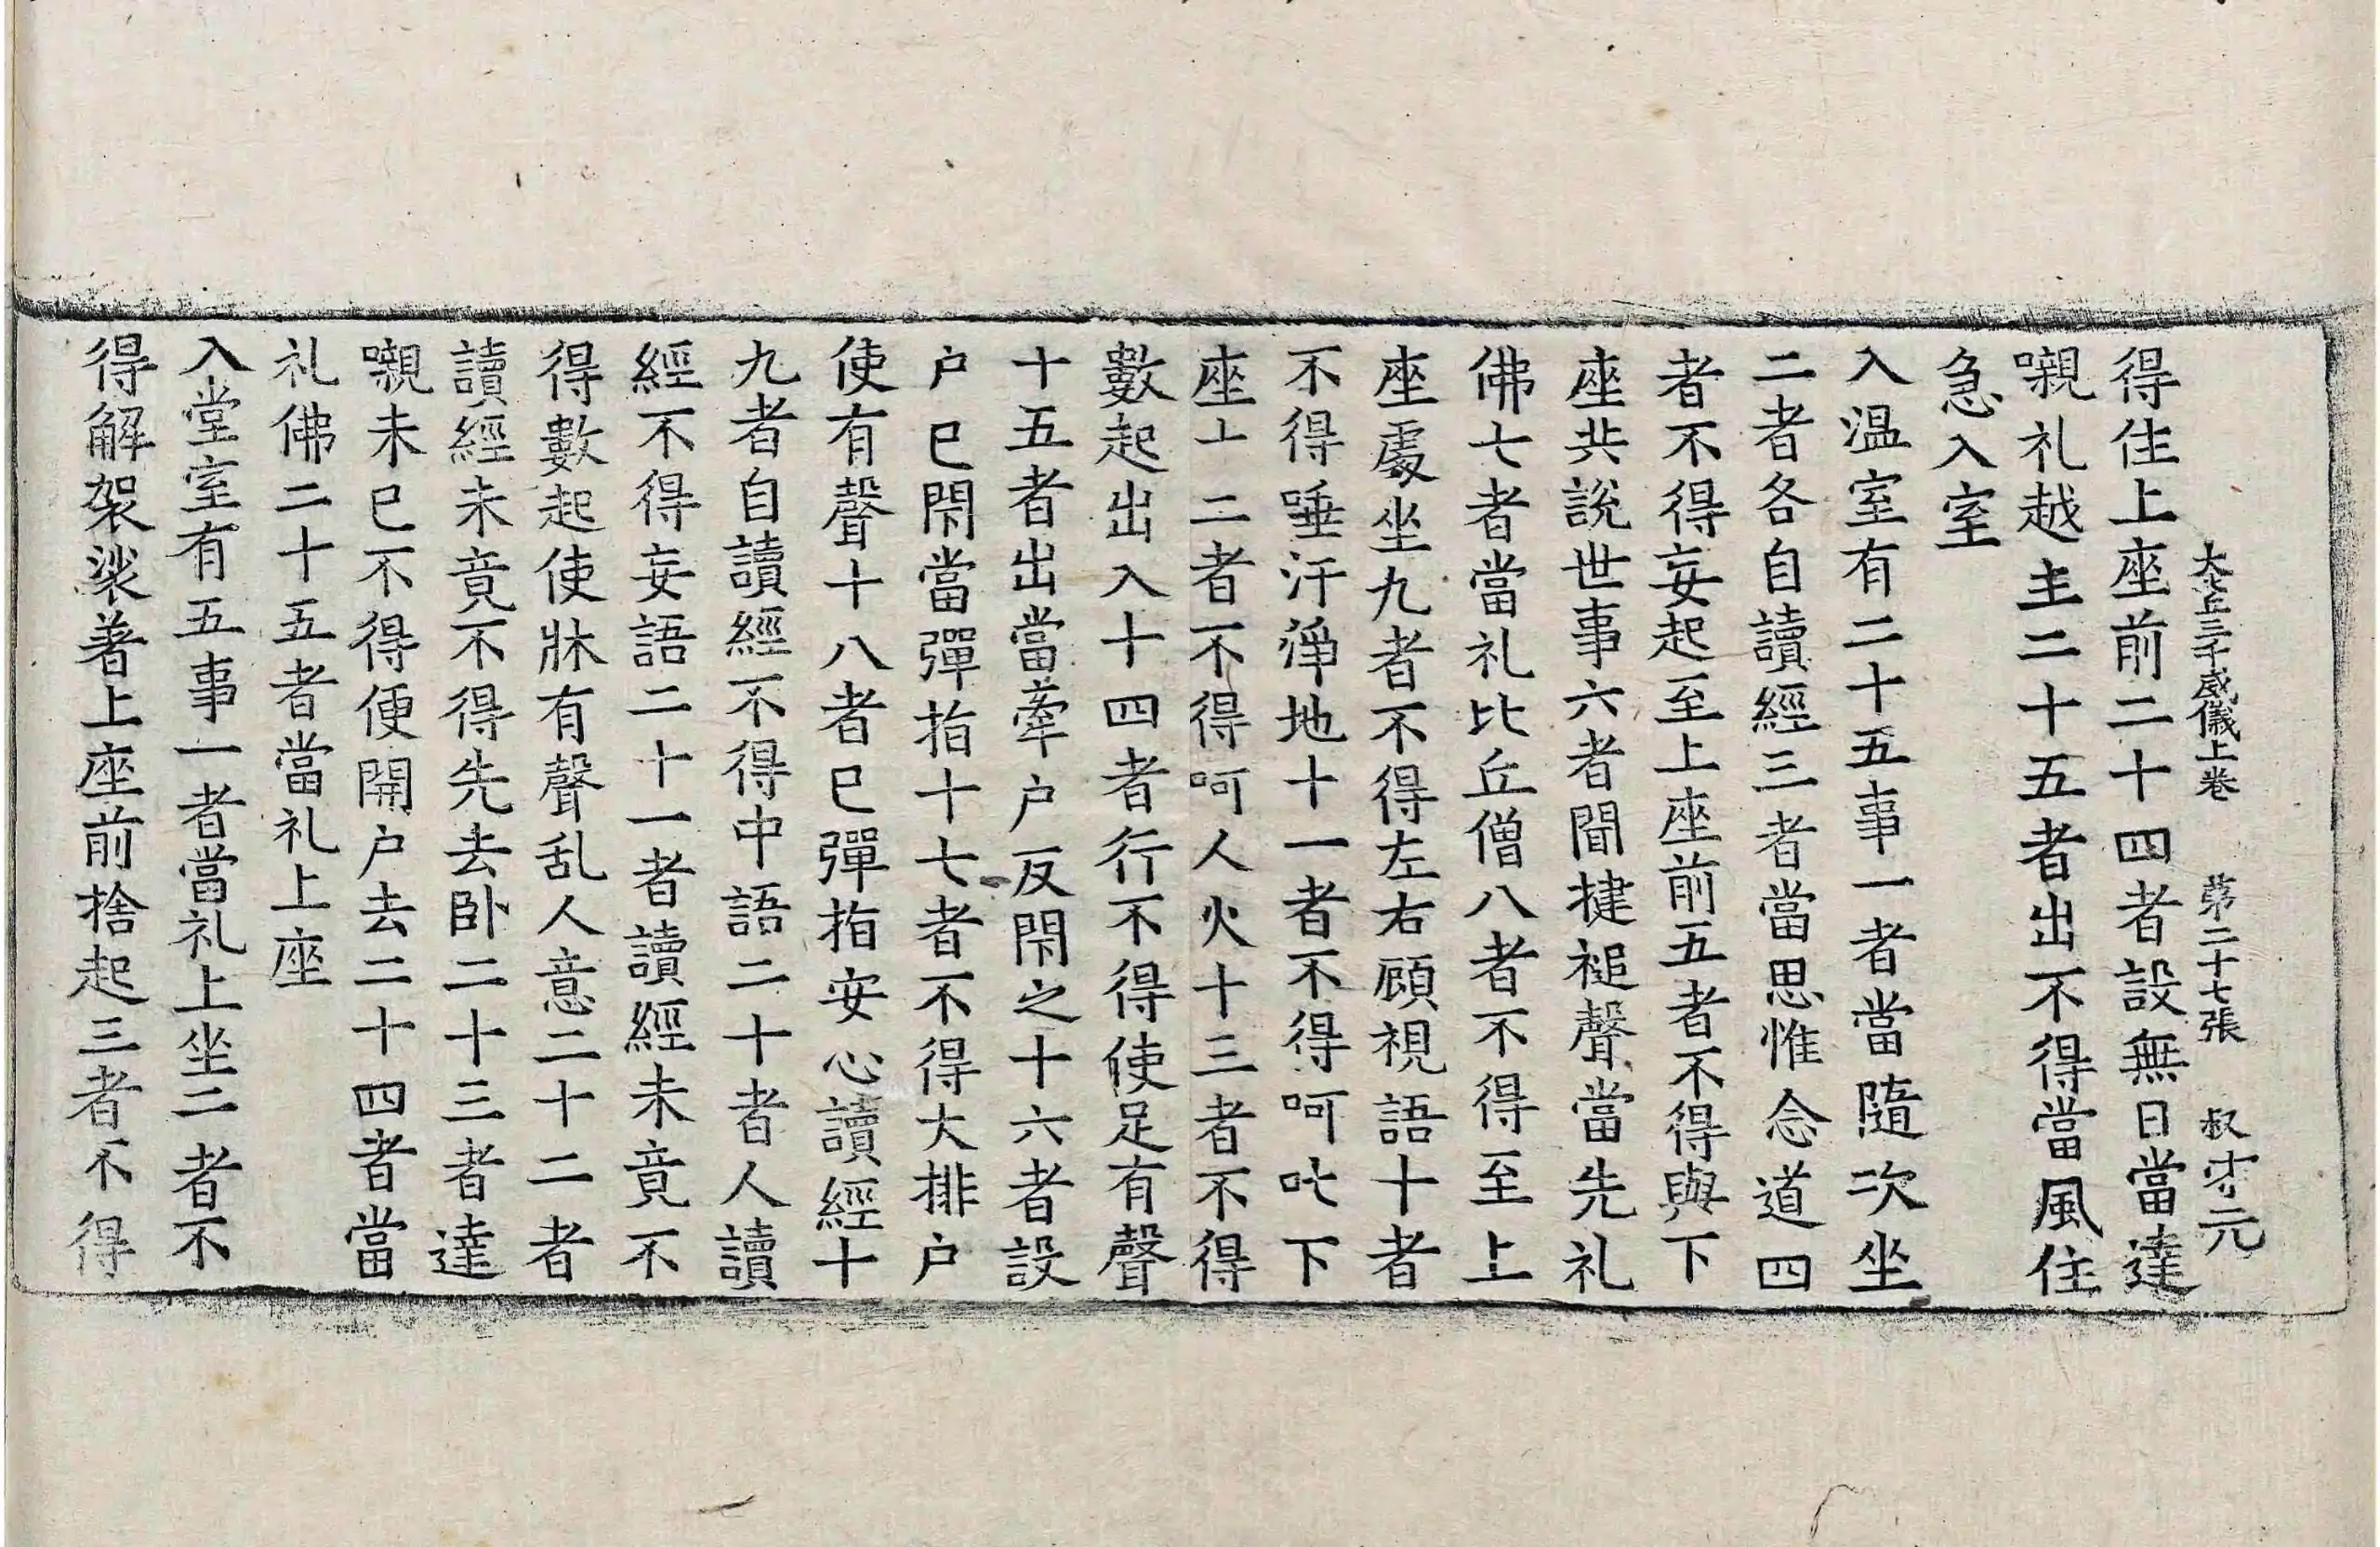 大比丘三千威儀上卷　第二十七張　叔
得住上座前二十四者設無日當達
嚫礼越主二十五者出不得當風住
急入室
入温室有二十五事一者當隨次坐
二者各自讀經三者當思惟念道四
者不得妄起至上座前五者不得與下
座共說世事六者聞揵槌聲當先礼
佛七者當礼比丘僧八者不得至上
座處坐九者不得左右顧視語十者
不得唾汙淨地十一者不得呵叱下
座十二者不得呵人火十三者不得
數起出入十四者行不得使足有聲
十五者出當牽户反閇之十六者設
户已閇當彈指十七者不得大排户
使有聲十八者已彈指安心讀經十
九者自讀經不得中語二十者人讀
經不得妄語二十一者讀經未竟不
得數起使牀有聲乱人意二十二者
讀經未竟不得先去卧二十三者達
嚫未已不得便開户去二十四者當
礼佛二十五者當礼上座
入堂室有五事一者當礼上坐二者不
得解袈裟著上座前捨起三者不得